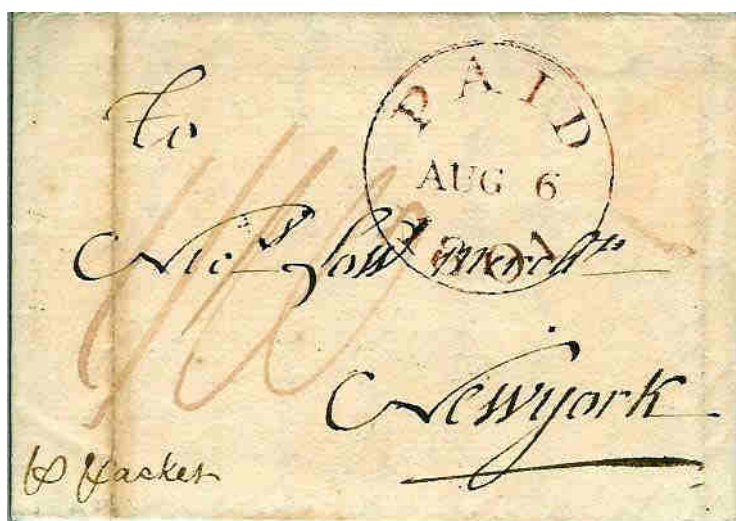 PAID
AUG 6
1801
To
Nics. Low mercht.
Newyork
p Packet